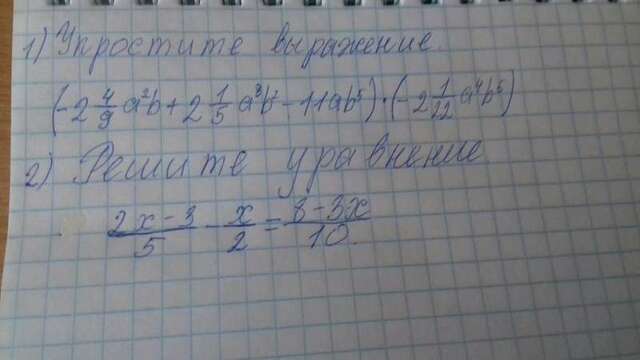 1) Упростите выражение.
(-2 4/9 a²b + 2 1/5 a³b² - 11ab⁵) · (-2 1/22 a⁴b⁵)
2) Решите уравнение
2x-3/5 - x/2 = 8-3x/10.